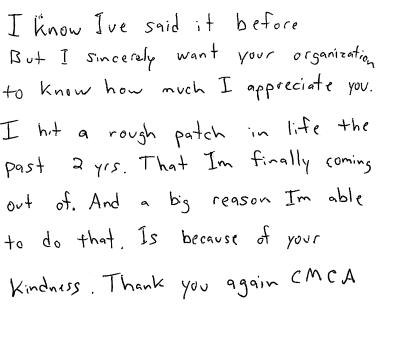 I know I've said it before
But I sincerely want your organization
to know how much I appreciate you.
I hit a rough patch in life the
past 2 yrs. That Im finally coming
out of. And a big reason Im able
to do that. Is because of your
kindness. Thank you again CMCA